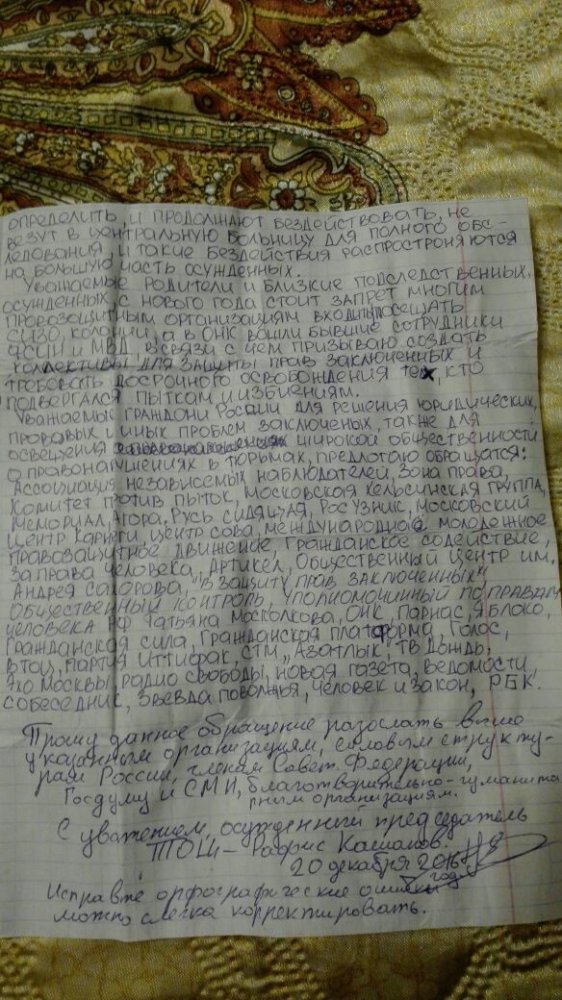 определить, и продолжают бездействовать, не
везут в центральную больницу для полного обс-
ледования, и такие бездействия распростроняются
на большую часть осужденных.
Уважаемые родители и близкие подследственных,
осужденных, с нового года стоит запрет многим
правозащитным организациям входить посещать
СИЗО, колонии, а в ОНК вошли бывшие сотрудники
ФСИН и МВД, в связи с чем призываю создать
коллективы для защиты прав заключенных и
требовать досрочного освобождения тех, кто
подвергался пыткам и избиениям.
Уважаемые граждони России для решения юридических,
провавых и иных проблем заключеных, также для
освещения широкой общественности
о правонарушениях в тюрьмах, предлогаю обращатся:
Ассоциация независимых наблюдателей, Зона права,
Комитет против пыток, Московская Хельсинская группа,
Мемориал, Агора, Русь сидящая, РосУзник, Московский
центр Карнеги, центр Сова, международное молодежное
правозащитное движение, Гражданское содействие,
За права человека, Артикел, Общественный центр им.
Андрея Сахорова, "В защиту прав заключенных"
Общественный контроль, уполномочинный по правам
человека РФ Татьяна Москолкова, ОНК, Парнас, Яблоко,
Гражданская сила, Гражданская платформа, Голос,
ВТОЦ, партия Иттифак, СТМ "Азатлык", ТВ Дождь,
Эхо Москвы, радио свободы, новая газета, ведомости,
собеседник, Звезда поволжья, человек и закон, РБК.
Прошу данное обращение разослать выше
указанным организациям, силовым структу-
рам России, членам Совет Федерации,
Госдуму и СМИ, благотворительно-гуманита
рным организациям.
С уважением, осужденный председатель
ТОЦ – Рафис Кашапов.
20 декабря 2016
год
Исправте орфографические ошибки
можно слегка корректировать.